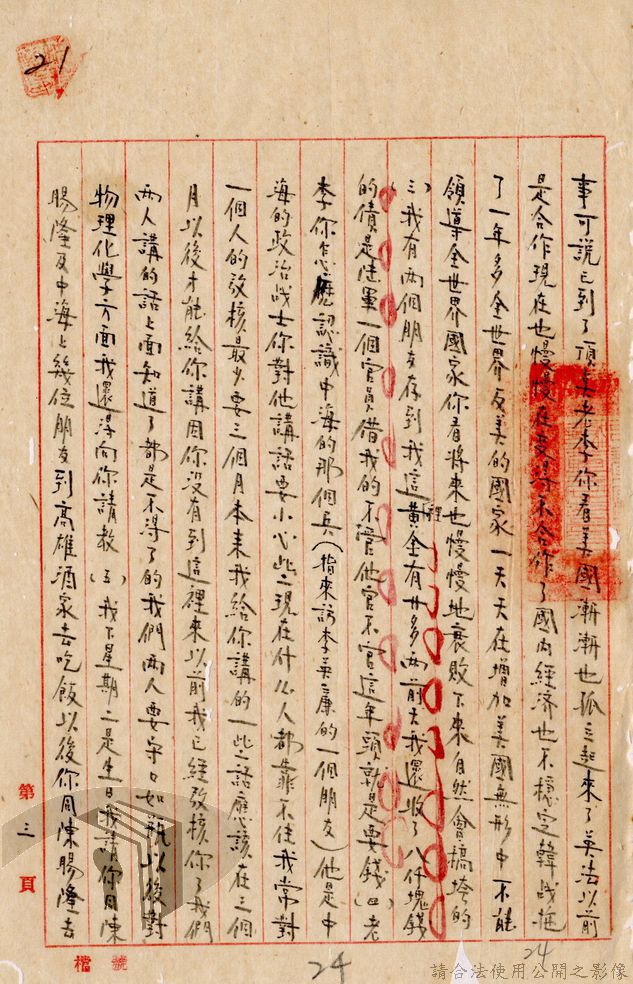 21
事可說已到了頂點老李你看美國漸漸也孤立起來了英法以前
是合作現在也慢慢在變得不合作了國內經济也不穩定韓战拖
了一年多全世界反美的國家一天天在增加美國無形中不能
領導全世界國家你看將來也慢慢地衰敗下來自然會搞垮的
(三)我有兩個朋友存到我這裡黃金有廿多兩前天我還收了八仟塊錢
的債是陸軍一個官員借我的不管他官不官這年頭就是要錢(四)老
李你怎麽認識中海的那個兵(指來訪李英廉的一個朋友)他是中
海的政治战士你對他講話要小心些現在什么人都靠不住我常對
一個人的攷核最少要三個月本来我給你講的一些話應該在三個
月以後才能給你講因你沒有到這裡來以前我已經攷核你了我們
兩人講的話上面知道了都是不得了的我們兩人要守口如瓶以後對
物理化學方面我還得向你請教(五)我下星期二是生日我請你同陳
賜隆及中海上幾位朋友到高雄酒家去吃飯以後你同陳賜隆去
第三頁
檔號
24
24
請合法使用公開之影像